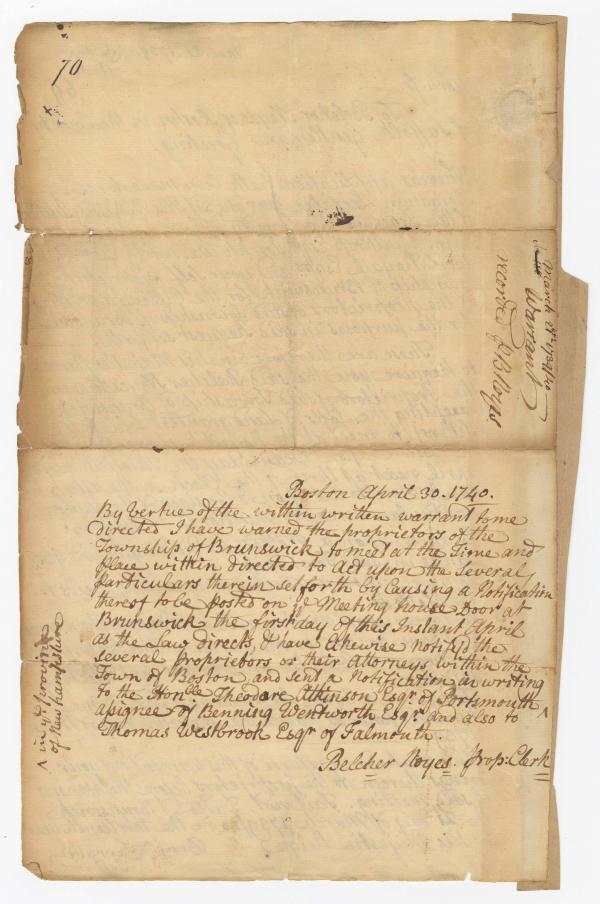 70
March 8th 1739/40
Warrant
recorded p B Noyes
Boston April 30. 1740.
By Vertue of the within written warrant to me
directed I have warned the proprietors of the
Township of Brunswick to meet at the Time and
place within directed to Act upon the Several
particulars therein set forth by Causing a Notification
thereof to be posted on ye Meeting house Door at
Brunswick the first day of this Instant April
as the Law directs, & have likewise notify'd the
several Proprietors or their Attorneys within the
Town of Boston and sent a Notification in writing
to the Honble Theodore Atkinson Esqr. of Portsmouth ^
asignee of Benning Wentworth Esqr. and also to
Thomas Westbrook Esqr of Falmouth.
Belcher Noyes. Prop: Clerk
^ in ye. province
of New hampshire